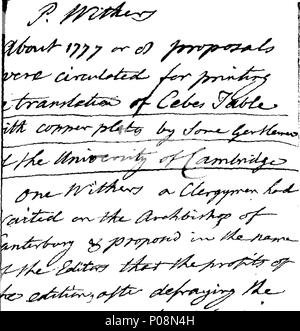 P. Withers
About 1777 or 8 proposals
were circulated for printing
a translation of Cebes Table
with copper plates by some Gentlemen
of the University of Cambridge
One Withers a Clergyman had
waited on the Archbishop of
Canterbury & proposed in the name
of the Editors that the profits of
the edition, after defraying the
alamy
Image ID: P08N4H
www.alamy.com